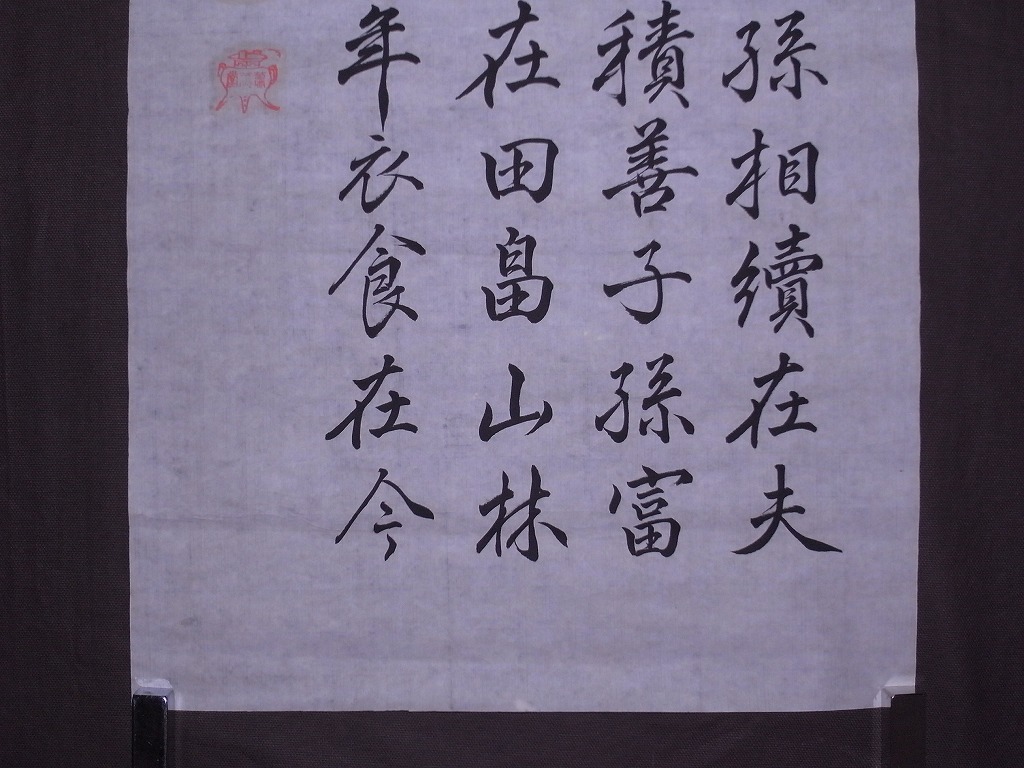 孫相續在夫
積善子孫富
在田畠山林
年衣食在今